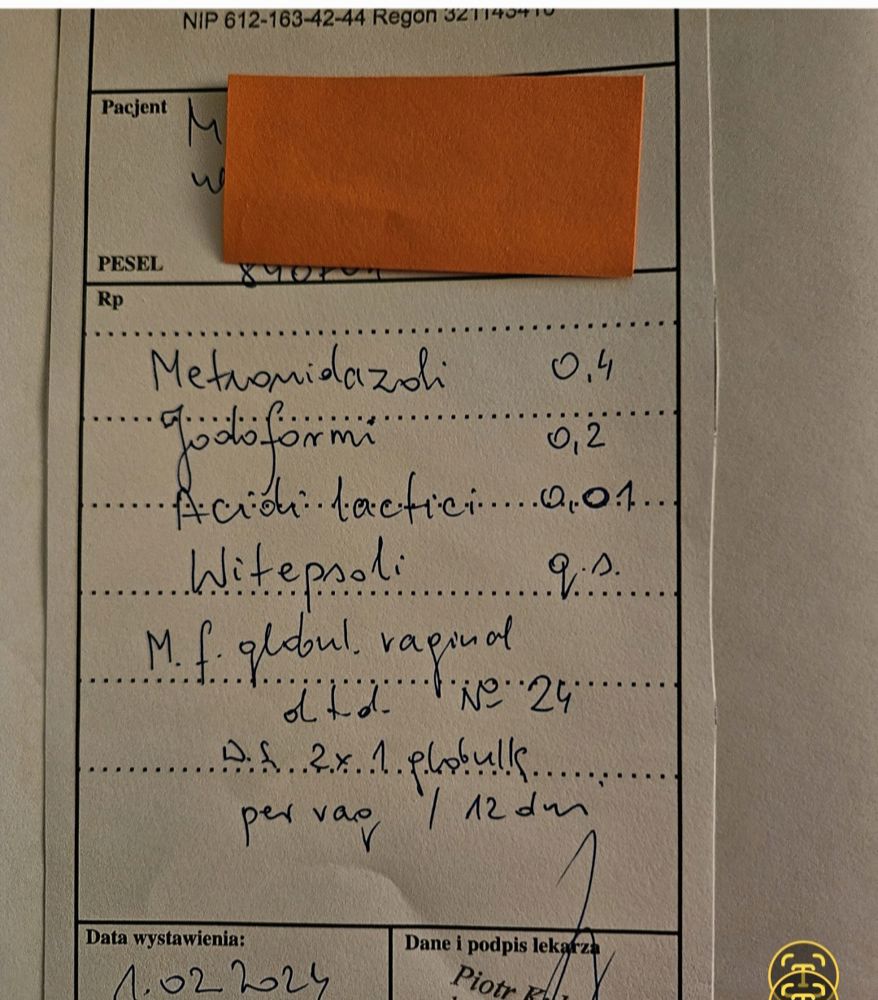 NIP 612-163-42-44 Regon
Pacjent M
w
PESEL
Rp
Metronidazoli 0,4
Jodoformi 0,2
Acidi lactici 0,01
Witepsoli q.s.
M. f. globul. vaginal
d.t.d. No 24
D.S. 2x1 globulkę
per vag / 12 dni
Data wystawienia: Dane i podpis lekarza
1.02 2024 Piotr